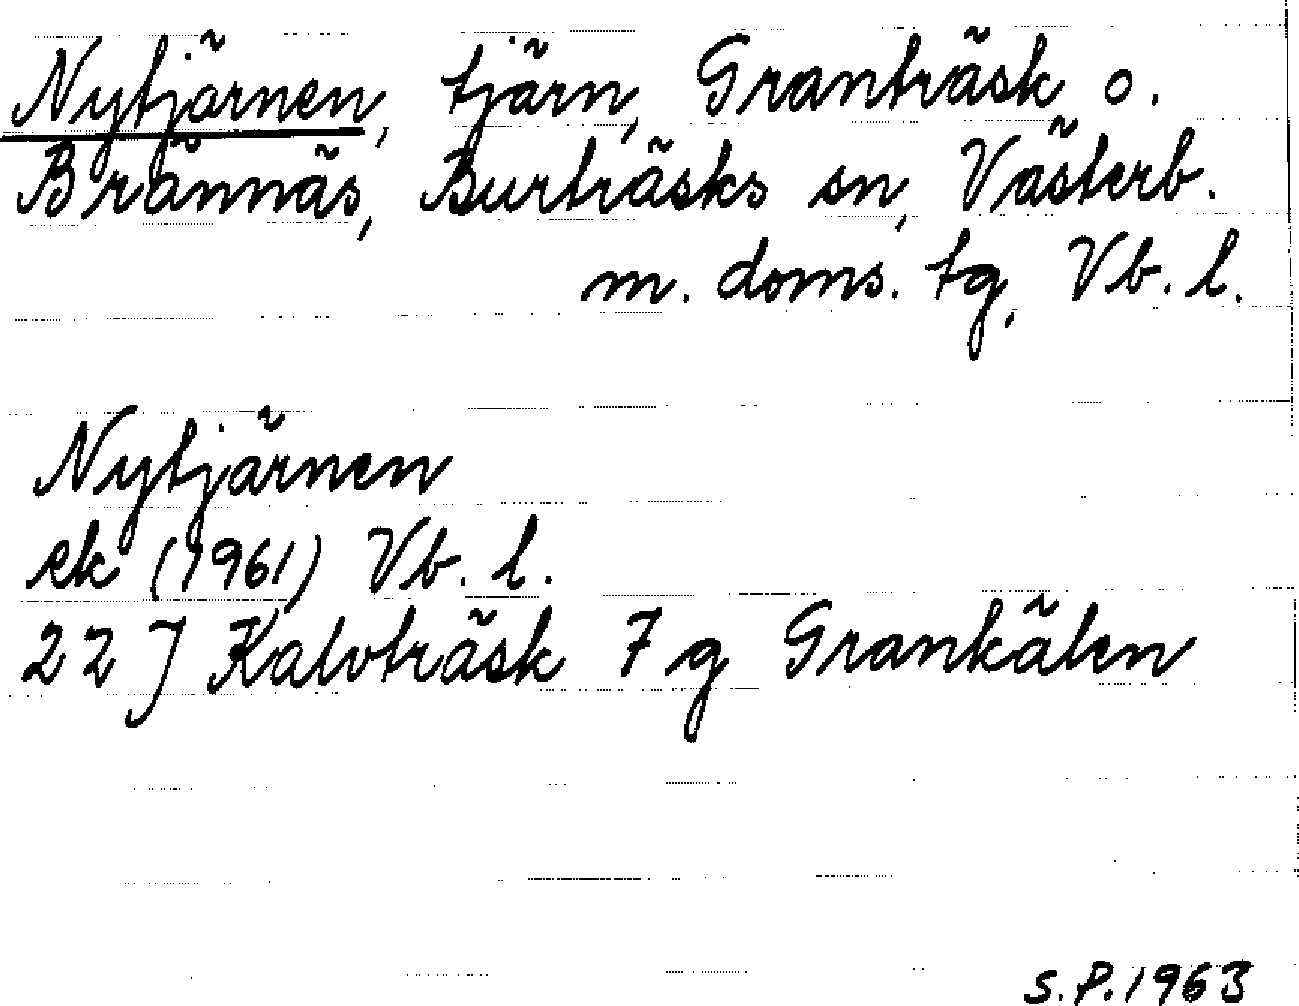 Nytjärnen, tjärn, Granträsk o.
Brännäs, Burträsks sn, Västerb.
m. doms. tg, Vb. l.
Nytjärnen
ek (1961) Vb. l.
22 J Kalvträsk 7 g Grankälen
S.P. 1963